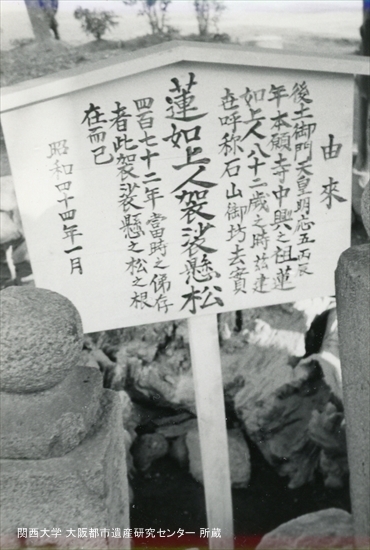 由來
後土御門天皇明応五丙辰
年本願寺中興之祖蓮
如上人八十二歳之時茲建
在呼称石山御坊去實
蓮如上人袈裟懸松
四百七十二年當時之俤存
者此袈裟懸之松之根
在而已
昭和四十四年一月
関西大学 大阪都市遺産研究センター 所蔵